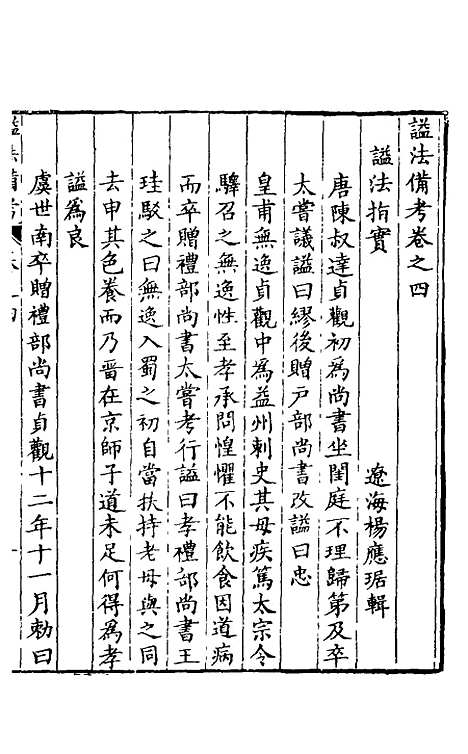 諡法備考卷之四
諡法指實　遼海楊應琚輯
唐陳叔達貞觀初為尚書坐閨庭不理歸第及卒
太嘗議諡曰繆後贈戶部尚書改諡曰忠
皇甫無逸貞觀中為益州刺史其母疾篤太宗令
驛召之無逸性至孝承問惶懼不能飲食因道病
而卒贈禮部尚書太嘗考行諡曰孝禮部尚書王
珪駁之曰無逸入蜀之初自當扶持老母與之同
去申其色養而乃畱在京師子道未足何得為孝
諡為良
虞世南卒贈禮部尚書貞觀十二年十一月勅曰
諡法備考